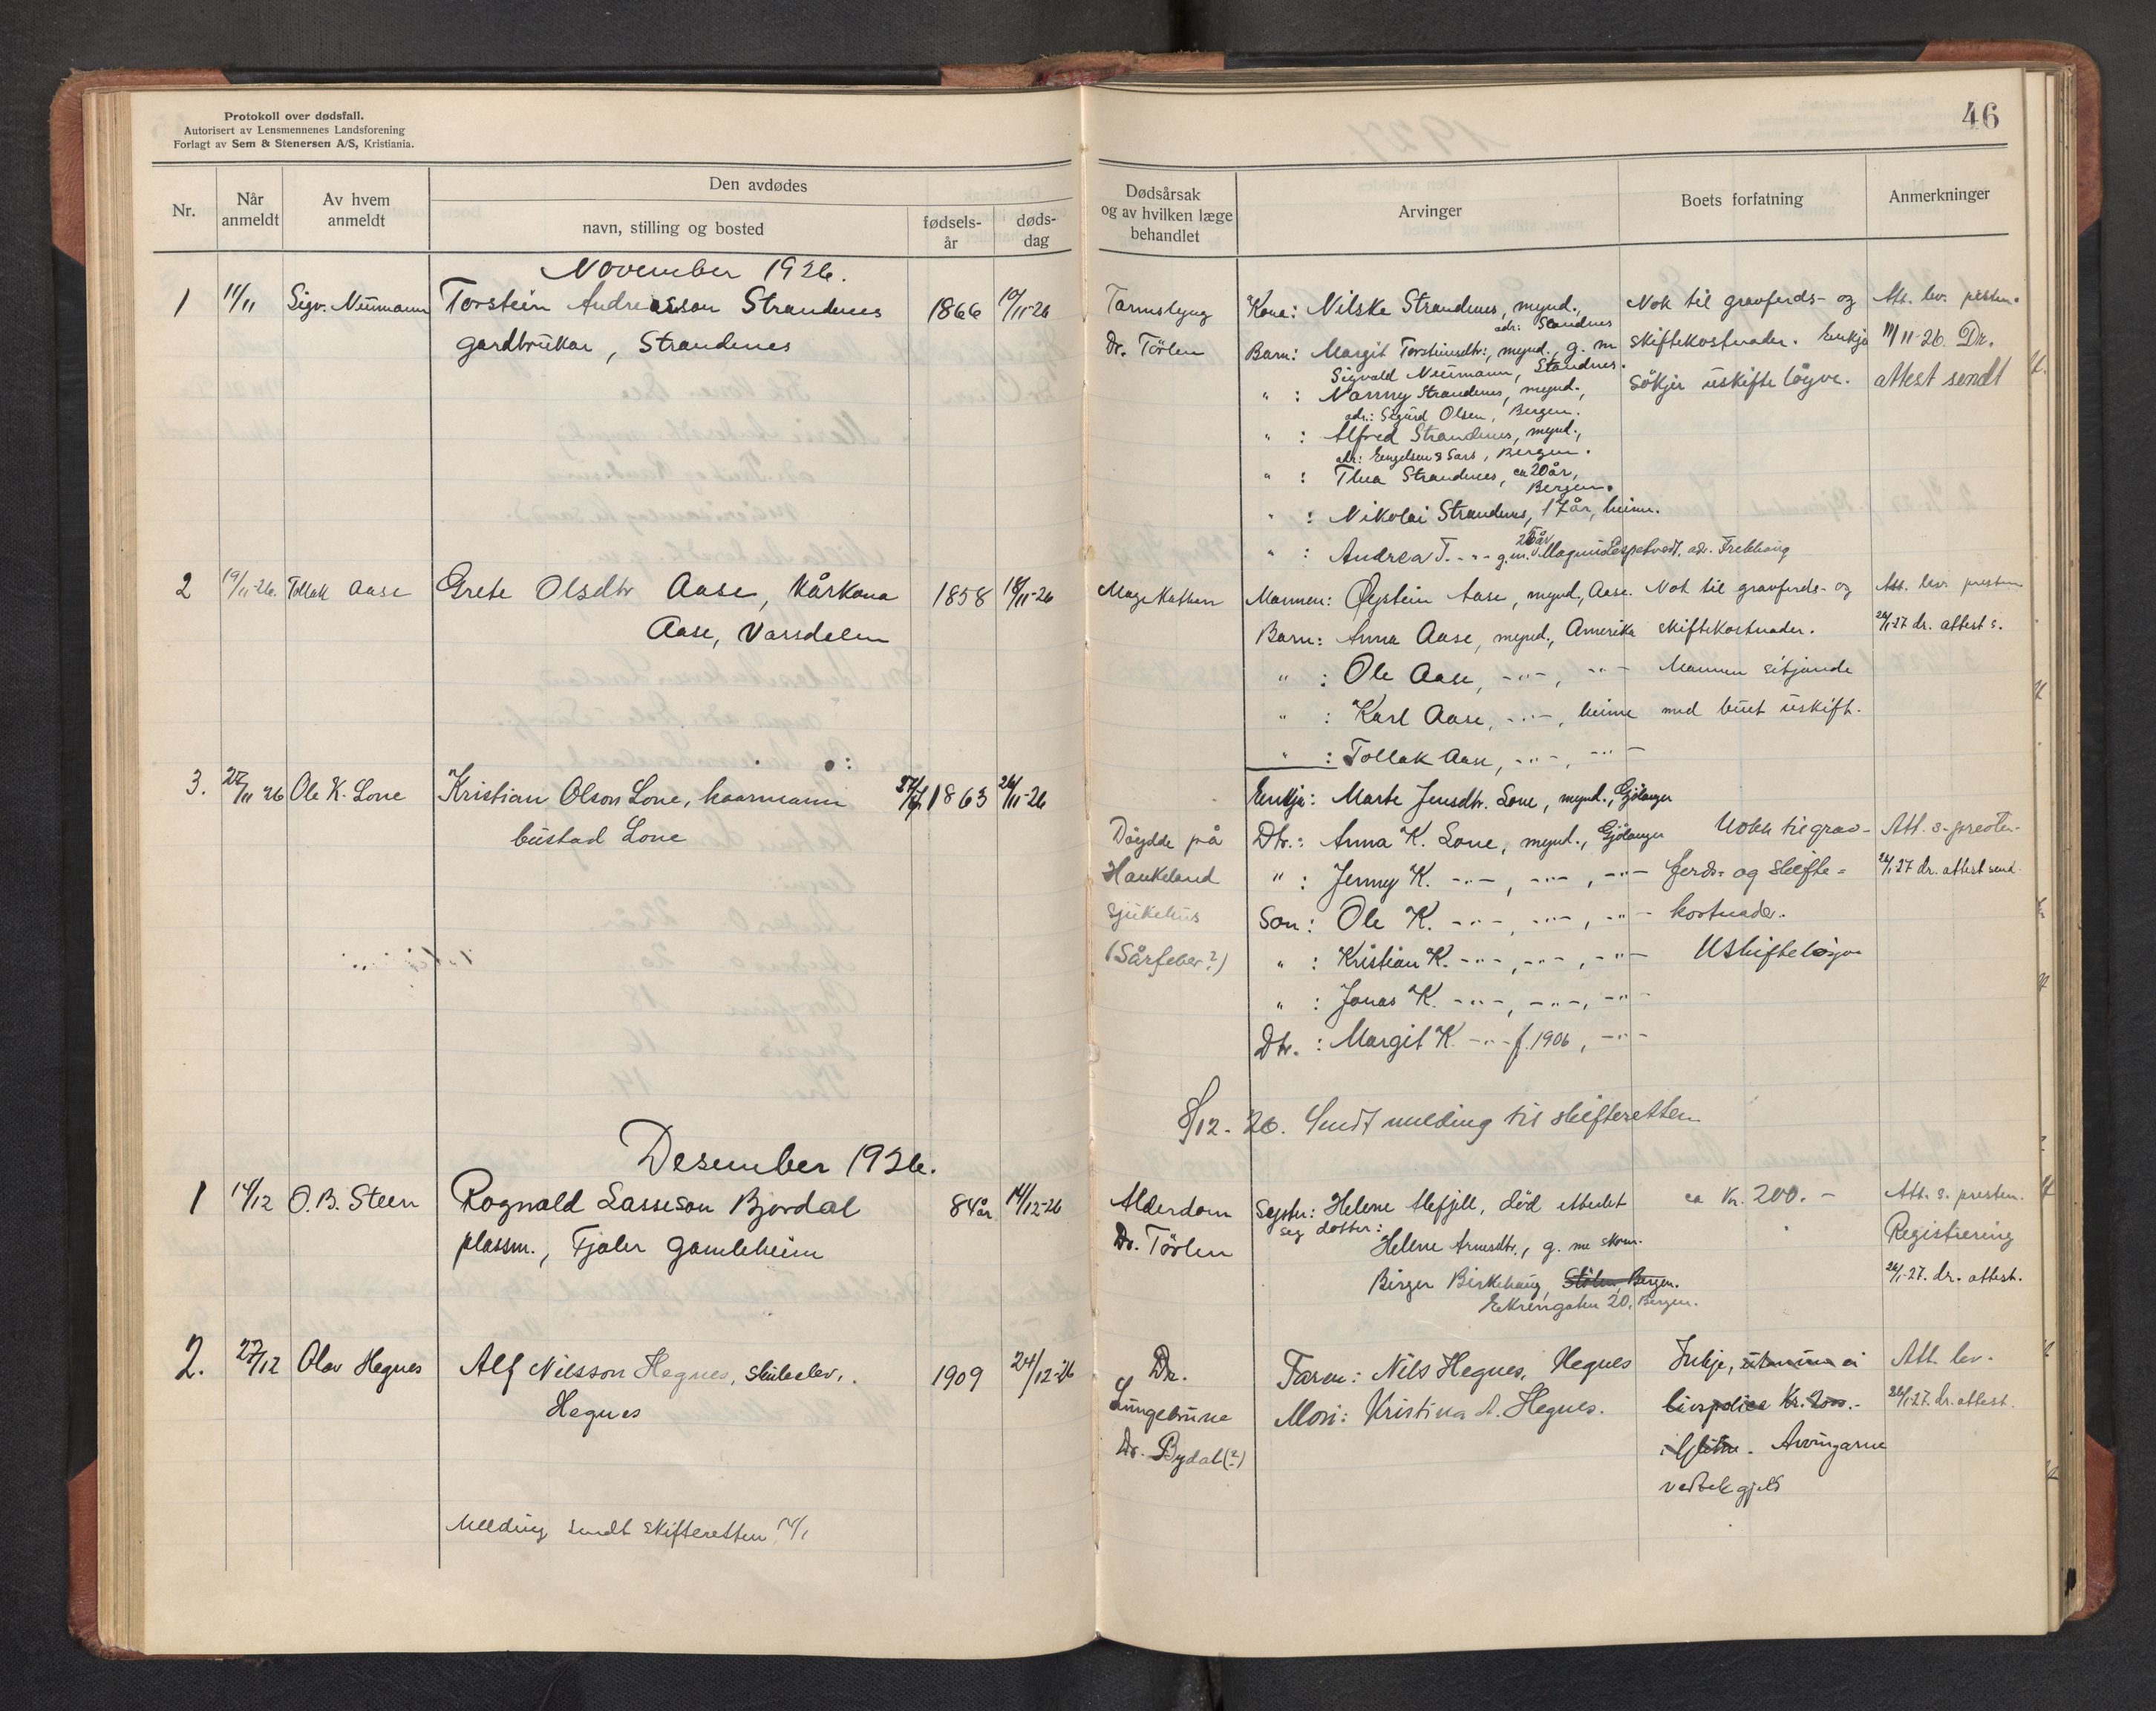 Protokoll over dødsfall.
Autorisert av Lensmennenes Landsforening
Forlagt av Sem & Stenersen A/S, Kristiania.
46
Nr.
Når anmeldt
Av hvem anmeldt
Den avdødes
navn, stilling og bosted
fødsels-år
døds-dag
Dødsårsak og av hvilken læge behandlet
Arvinger
Boets forfatning
Anmerkninger
November 1926.
1 11/11 Sigv. Neumann Torstein Andreasson Strandenes 1866 10/11-26
gardbrukar, Strandenes
Tarmslyng
Dr. Törlen
Kona: Nilske Strandenes, mynd.,
adr: Standnes
Barn: Margit Torsteinsdtr., mynd., g. m
Sigvald Neumann, Standnes.
" : Nanny Strandenes, mynd.,
adr.: Sigurd Olsen, Bergen.
" : Alfred Strandenes, mynd.,
adr: Engelsen & Sars, Bergen.
" : Thea Strandenes, ca 20 år,
Bergen.
" : Nikolai Strandenes, 17 år, heim.
" : Andrea T. -"- g.m. Magnus
Nok til gravferds- og
skiftekostnader. Enkja
sökjer uskifte löyve.
Att. lev. presten.
11/11-26. Dr.
attest sendt
2 19/11-26. Tollak Aase Grete Olsdtr Aase, kårkona 1858 18/11-26
Aase, Vassdalen
Mannen: Øystein Aase, mynd, Aase.
Barn: Anna Aase, mynd., Amerika
" : Ole Aase, -"-, -"-
" : Karl Aase, -"-, heime
" : Tollak Aase, -"-, -"-
Nok til gravferds- og
skiftekostnader.
Mannen sitjande
med buet uskift.
Att. lev. presten
26/1-27 dr. attest s.
3. 27/11 26 Ole K. Lone Kristian Olson Lone, kaarmann 1863 26/11-26
bustad Lone
Döydde på
Haukeland
sjukehus
(Sårfeber?)
Enkja: Marte Jensdtr. Lone, mynd., Gjölanger
Dtr.: Anna K. Lone, mynd., Gjölanger
" : Jenny K. -"-, -"-, -"-
Son: Ole K. -"-, -"-, -"-
" : Kristian K. -"-, -"-, -"-
" : Jonas K. -"-, -"-, -"-
Dtr. : Margit K. -"- f. 1906, -"-
Nokk til grav-
ferds- og skifte-
kostnader.
Uskifteløyve
Att. s. presten.
26/1-27 dr. attest send.
8/12. 26. Sendt melding til skifteretten
Desember 1926.
1 14/12 O. B. Steen Rognald Lasseson Bjordal 84 år 14/12-26
plassm., Fjaler gamleheim
Alderdom
Dr. Törlen
Syster: Helene Alefjell, död etterlet
seg dotter:
Helene Arnesdtr., g. me skom.
Birger Birkehaug, Stölen, Bergen.
Ekrengaten 20, Bergen.
ca kr. 200.-
Att. s. presten.
Registrering
26/1-27. dr. attest.
2. 27/12 Olav Hegnes Alf Nilsson Hegnes, skuleelev. 1909 24/12-26
Hegnes
Dr.
Lungebrune
Dr. Bydal (?)
Faren: Nils Hegnes, Hegnes
Mori: Kristina A. Hegnes.
Inkje,
livspolise Kr.
Arvingarne
vedtek gjeld
Att. lev.
26/1-27. dr. attest.
Melding sendt skifteretten 14/1